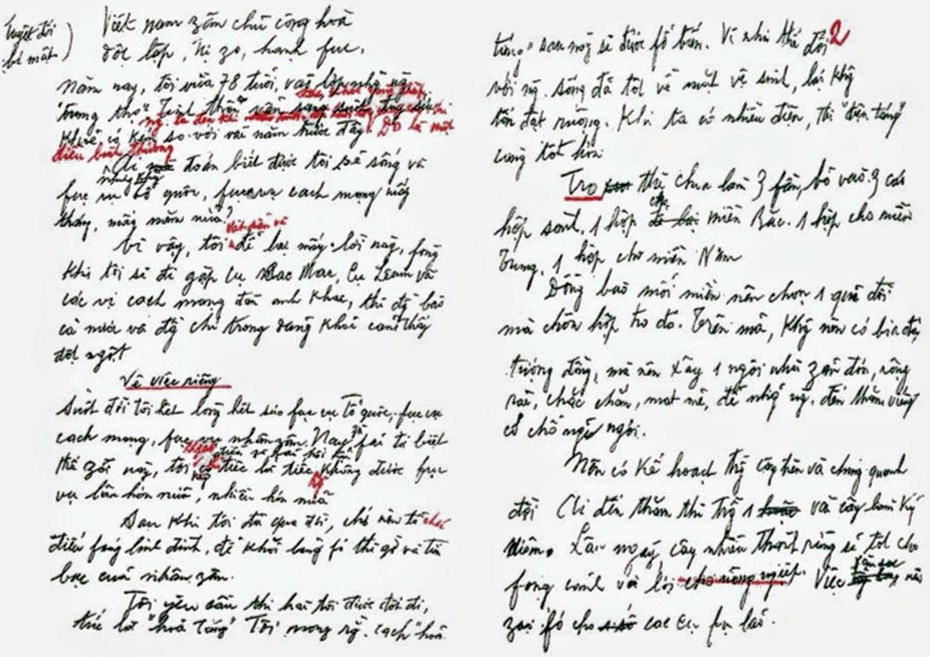 Tuyệt đối
bí mật)
Việt nam zân chủ cộng hoà
độc lập, tự zo, hạnh fúc.
Năm nay, tôi vừa 78 tuổi, vào lớp những ng.
"trung thọ". Tinh thần vẫn sáng suốt
khoẻ có kém so với vài năm trước đây. Đó là một
điều bình thường
Ai mà đoán biết được tôi sẽ sống và
fục vụ tổ quốc, fục vụ cách mạng mấy
tháng, mấy năm nữa?
Vì vậy, tôi để lại mấy lời này, fòng
khi tôi sẽ đi gặp cụ Các Mác, cụ Lênin và
các vị cách mạng đàn anh khác, thì đg bào
cả nước và đg chí trong đảng khỏi cảm thấy
đột ngột
Về việc riêng
Suốt đời tôi hết lòng hết sức fục vụ tổ quốc, fục vụ
cách mạng, fục vụ nhân zân. Nay zù fải từ biệt
thế zới này, tôi không có điều gì fải hối hận
chỉ tiếc là tiếc không được fục
vụ lâu hơn nữa, nhiều hơn nữa
Sau khi tôi đã qua đời, chớ nên tổ chức
điếu fúng linh đình, để khỏi lãng fí thì zờ và tiền
bạc của nhân zân.
Tôi yêu cầu thi hài tôi được đốt đi,
tức là "hoả táng" Tôi mong rg. cách "hoả
táng" sau này sẽ được fổ biến. Vì như thế đối 2
với ng. sống đã tốt về mặt vệ sinh, lại khg
tốn đất ruộng. Khi ta có nhiều điện, thì "điện táng"
càng tốt hơn
Tro thì chia làm 3 fần, bỏ vào 3 cái
hộp sành, 1 hộp cho miền Bắc. 1 hộp cho miền
Trung, 1 hộp cho miền Nam
Đồng bào mỗi miền nên chọn 1 quả đồi
mà chôn hộp tro đó. Trên mả, khg nên có bia đá
tượng đồng, mà nên xây 1 ngôi nhà zản đơn, rộng
rãi, chắc chắn, mát mẻ, để những ng. đến thăm viếng
có chỗ nghỉ ngơi.
Nên có kế hoạch trg cây trên và chung quanh
đồi Ai đến thăm thì trg 1 vài cây làm kỷ
niệm. Lâu ngày, cây nhiều thành rừng sẽ tốt cho
fong cảnh và lợi cho nông ngiệp. Việc săn sóc nên
zao fó cho các cụ fụ lão.